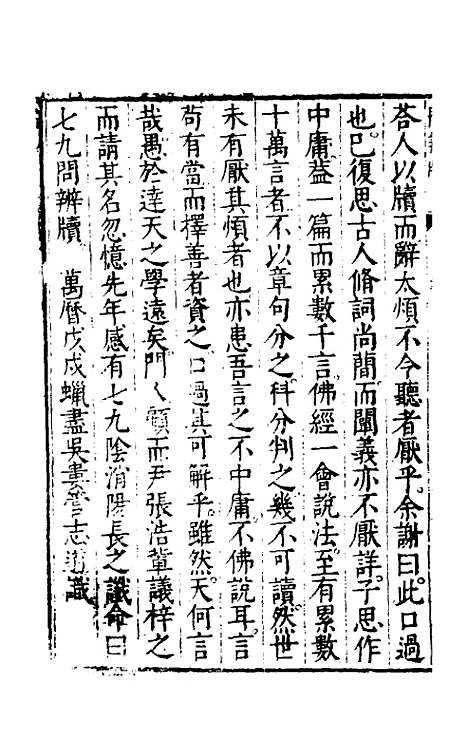 荅人以牘而辭太煩不令聽者厭乎余謝曰此口過
也已復思古人脩詞尚簡而闡義亦不厭詳子思作
中庸蓋一篇而累數千言佛經一會說法至有累數
十萬言者不以章句分之科分判之幾不可讀然世
未有厭其煩者也亦患吾言之不中庸不佛說耳言
苟有當而擇善者資之口過其可解乎雖然天何言
哉愚於達天之學遠矣門人顧而尹張浩軰議梓之
而請其名忽憶先年感有七九陰消陽長之讖命曰
七九問辨牘 萬曆戊戌蜡盡吳婁管志道識